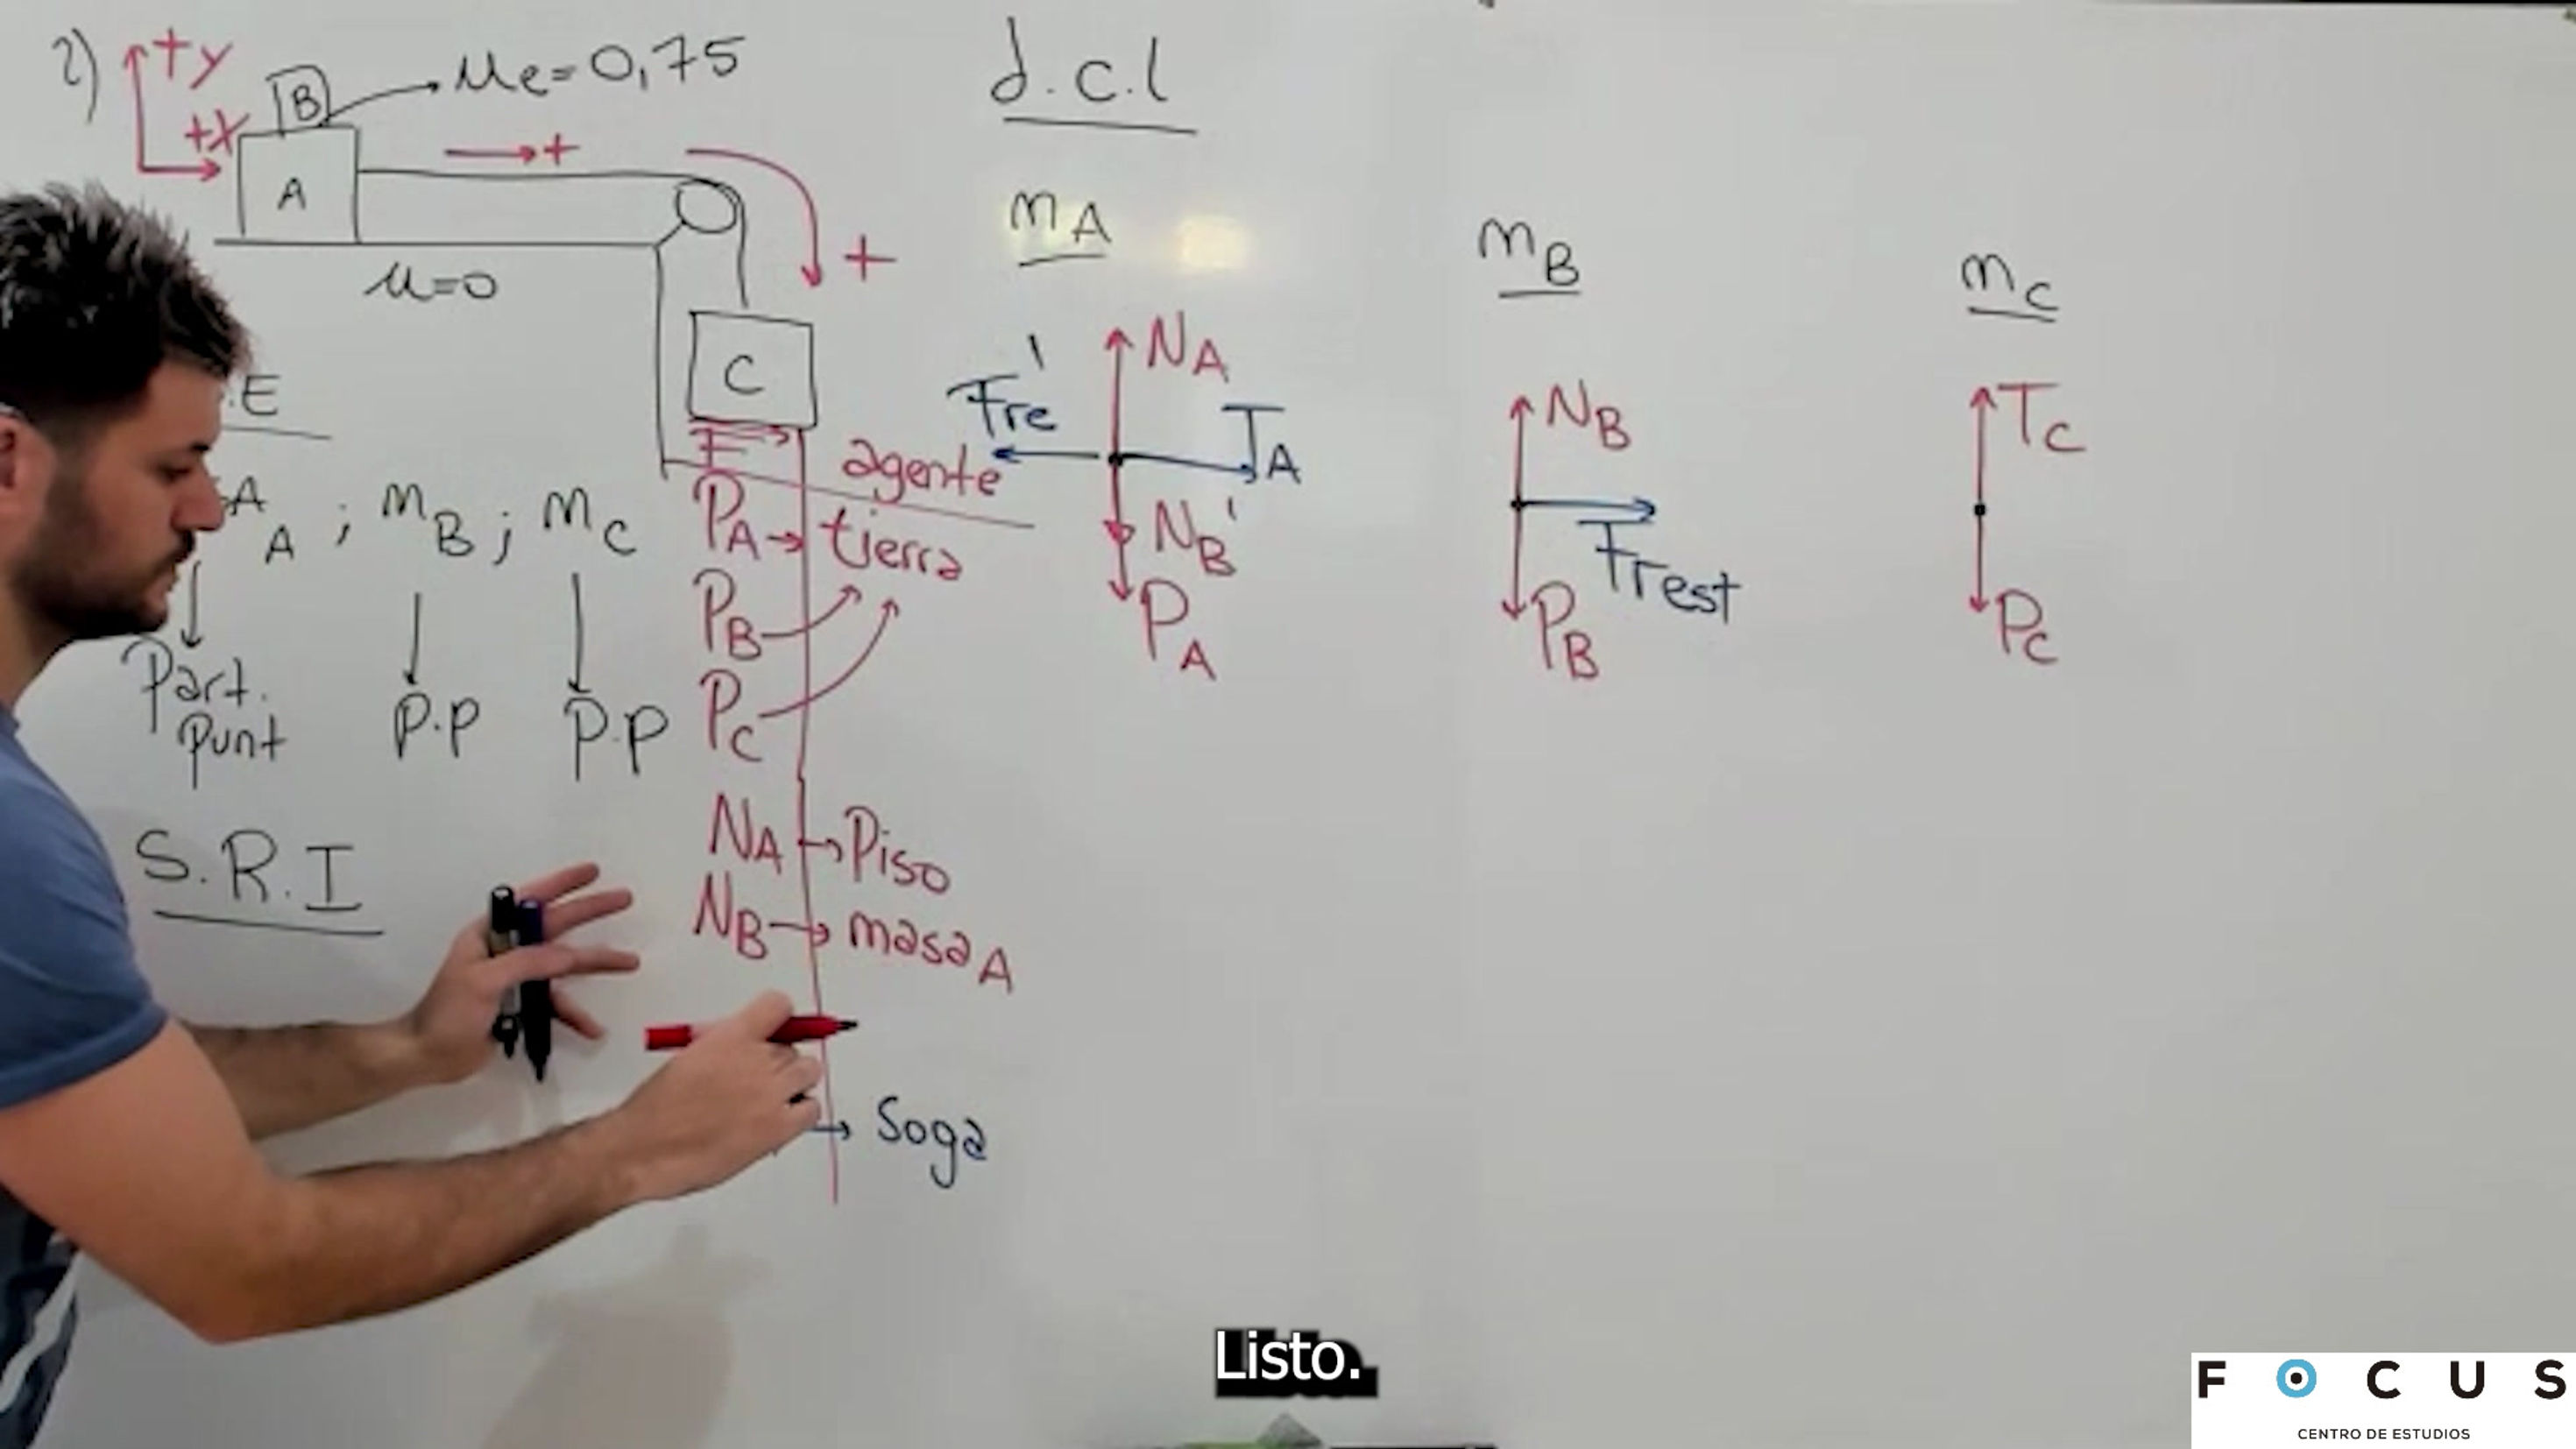 2)
+y
+x
B
Me=0,75
→+
A
+
μ=0
C
.E
A ; mB ; mC
Part. Punt
P.P
P.P
S.R.I
F
agente
PA→ tierra
PB
PC
NA → Piso
NB → masa A
→ Soga
d.c.l
mA
NA
Fre'
TA
NB'
PA
mB
NB
Frest
PB
mC
TC
PC
Listo.
FOCUS
CENTRO DE ESTUDIOS